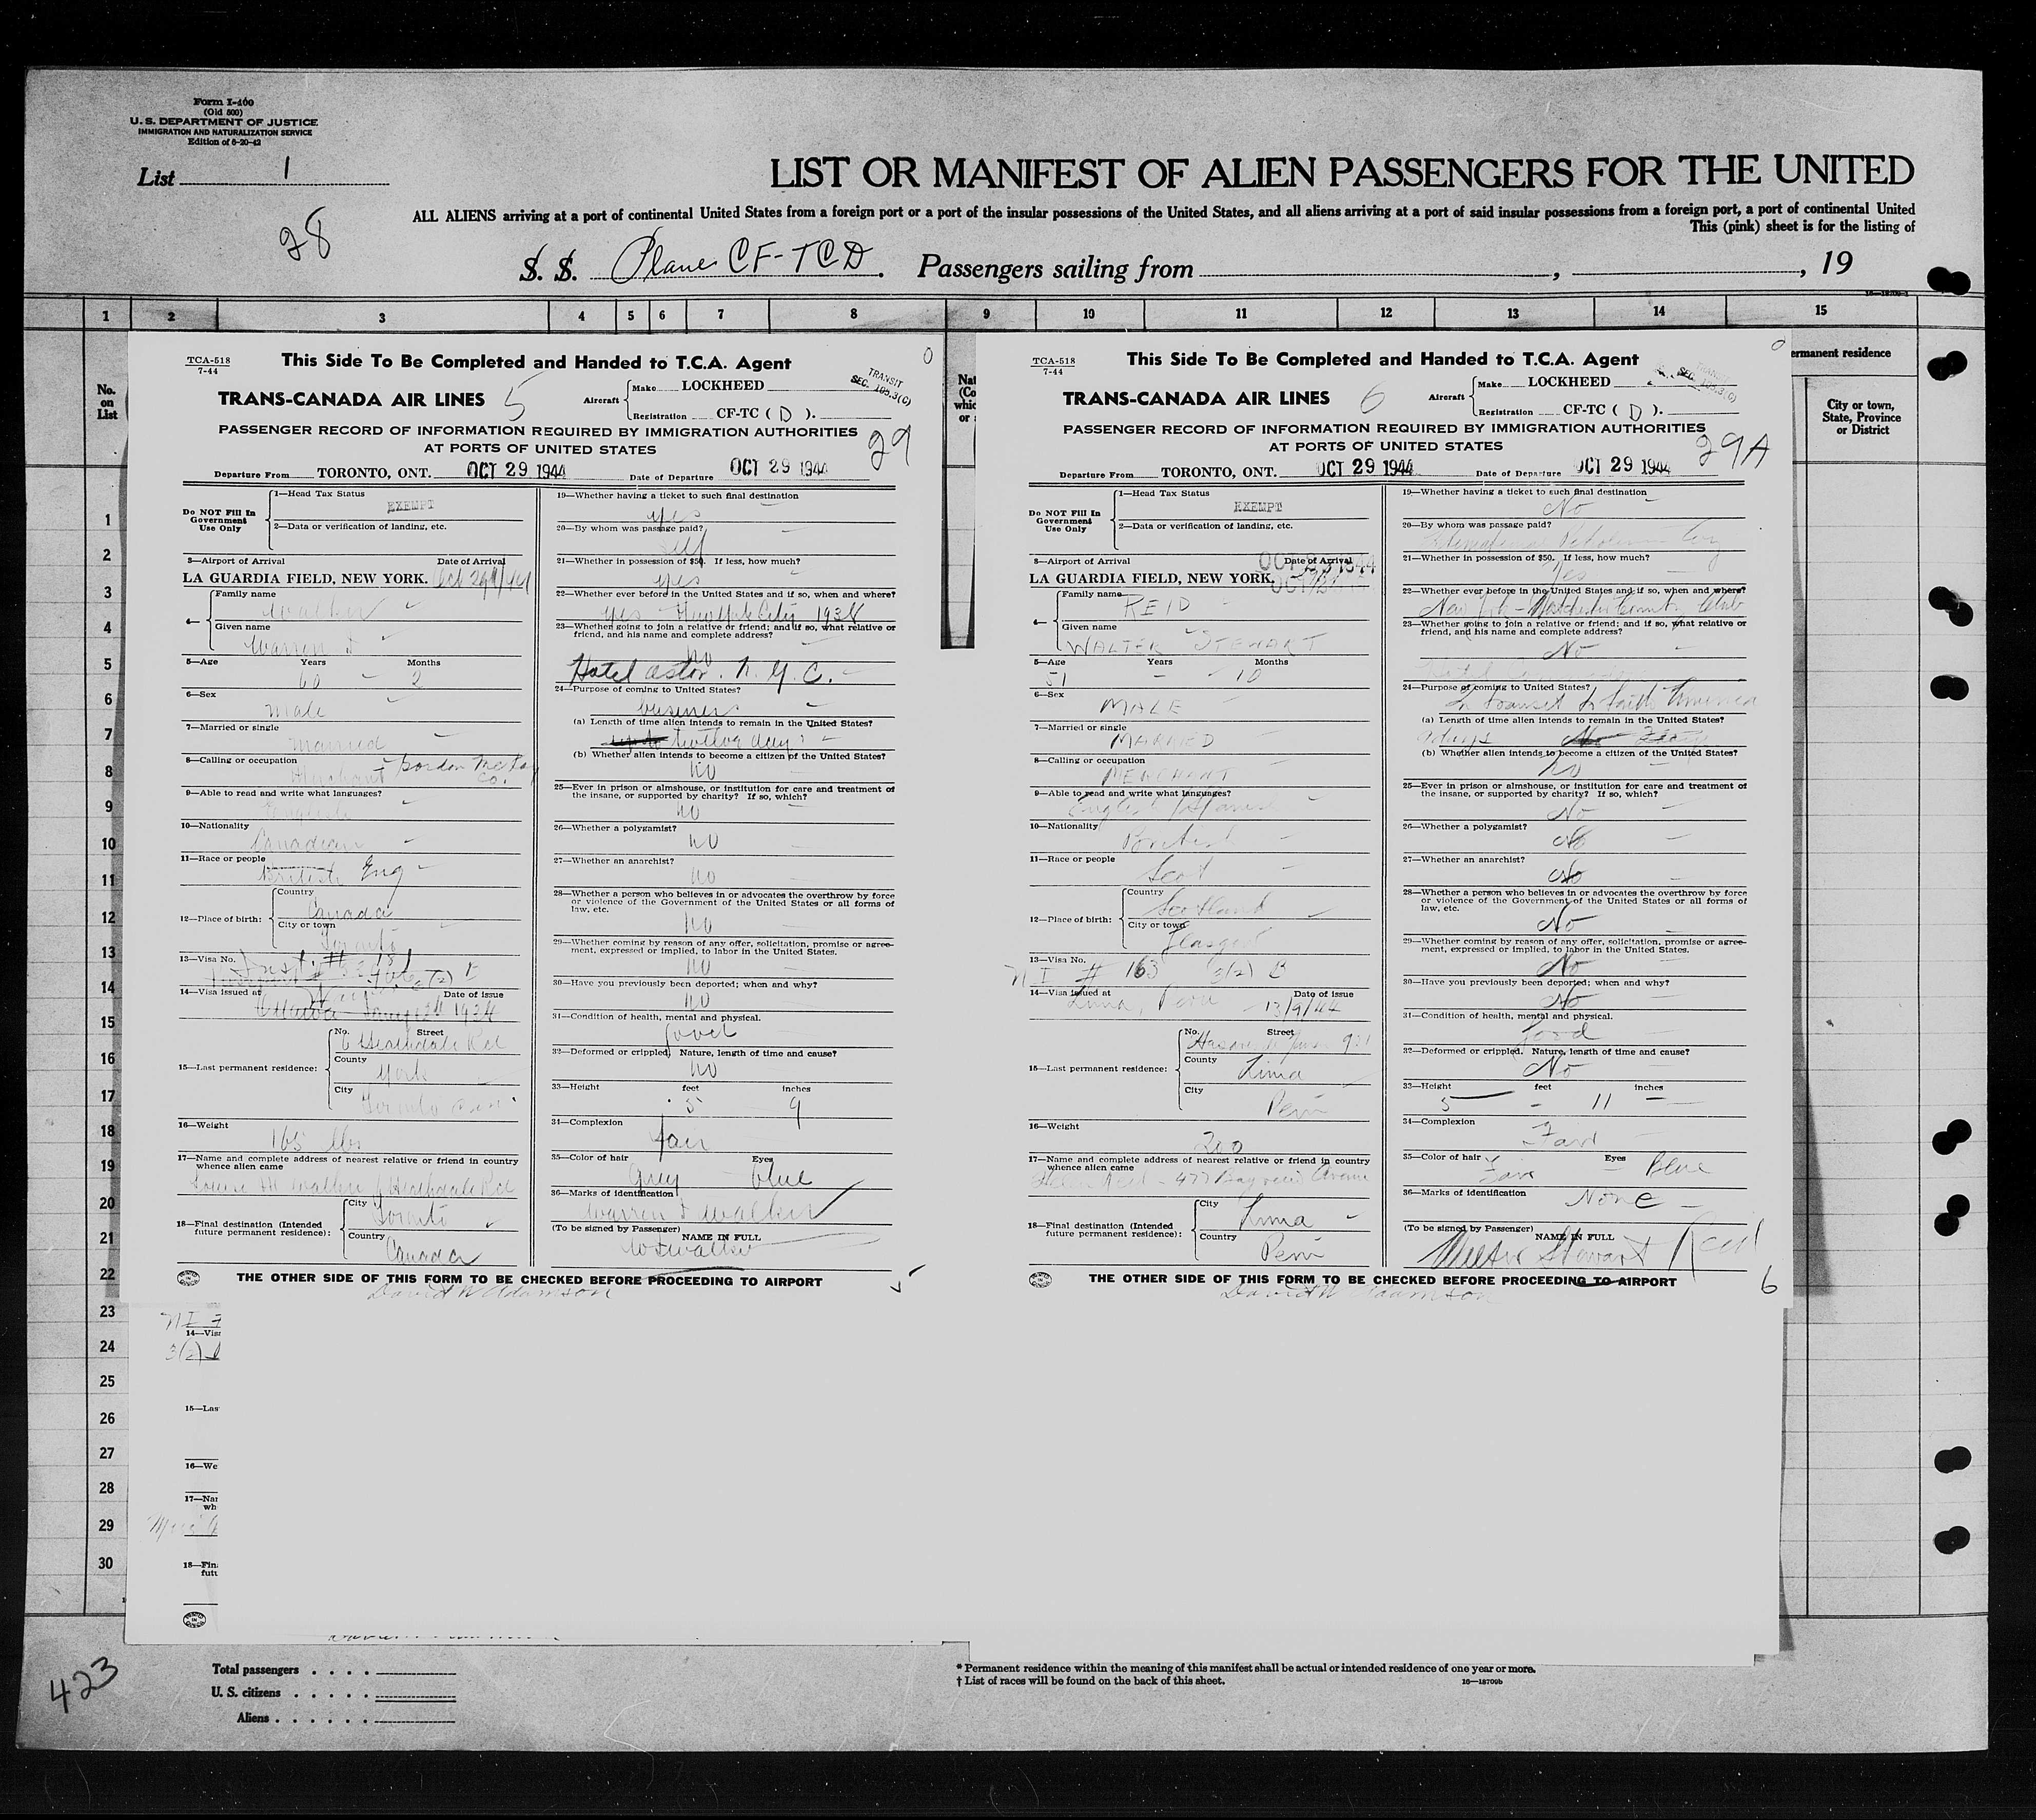 Form I-400
(Old 500)
U. S. DEPARTMENT OF JUSTICE
IMMIGRATION AND NATURALIZATION SERVICE
Edition of 6-20-42
List 1
28
LIST OR MANIFEST OF ALIEN PASSENGERS FOR THE UNITED
ALL ALIENS arriving at a port of continental United States from a foreign port or a port of the insular possessions of the United States, and all aliens arriving at a port of said insular possessions from a foreign port, a port of continental United
This (pink) sheet is for the listing of
S. S. Plane CF-TCD. Passengers sailing from , , 19
1 2 3 4 5 6 7 8 9 10 11 12 13 14 15
No. on List
ermanent residence
City or town, State, Province or District
1
2
3
4
5
6
7
8
9
10
11
12
13
14
15
16
17
18
19
20
21
22
23
24
25
26
27
28
29
30
TCA-518
7-44
This Side To Be Completed and Handed to T.C.A. Agent
0
TRANS-CANADA AIR LINES 5
Aircraft Make LOCKHEED
Registration CF-TC ( D ).
TRANSIT
SEC. 105.3(C)
PASSENGER RECORD OF INFORMATION REQUIRED BY IMMIGRATION AUTHORITIES
AT PORTS OF UNITED STATES
29
Departure From TORONTO, ONT. OCT 29 1944 Date of Departure OCT 29 1944
Do NOT Fill In Government Use Only
1—Head Tax Status
EXEMPT
2—Data or verification of landing, etc.
3—Airport of Arrival Date of Arrival
LA GUARDIA FIELD, NEW YORK. Oct 29th/44
4— Family name
Walker
Given name
Warren
5—Age Years Months
60 2
6—Sex
male
7—Married or single
Married
8—Calling or occupation
Merchant Gordon McKay Co.
9—Able to read and write what languages?
English
10—Nationality
Canadian
11—Race or people
British Eng
12—Place of birth: Country
Canada
City or town
Toronto
13—Visa No.
14—Visa issued at Date of issue
Ottawa
15—Last permanent residence: No. Street
Heathdale Rd
County
York
City
Toronto
16—Weight
165 lbs
17—Name and complete address of nearest relative or friend in country whence alien came
Walker Heathdale Rd
18—Final destination (Intended future permanent residence): City
Toronto
Country
Canada
19—Whether having a ticket to such final destination
yes
20—By whom was passage paid?
self
21—Whether in possession of $50. If less, how much?
yes
22—Whether ever before in the United States and if so, when and where?
yes New York City 1938
23—Whether going to join a relative or friend; and if so, what relative or friend, and his name and complete address?
no
Hotel Astor. N. Y. C.
24—Purpose of coming to United States?
business
(a) Length of time alien intends to remain in the United States?
up to twelve days
(b) Whether alien intends to become a citizen of the United States?
no
25—Ever in prison or almshouse, or institution for care and treatment of the insane, or supported by charity? If so, which?
no
26—Whether a polygamist?
no
27—Whether an anarchist?
no
28—Whether a person who believes in or advocates the overthrow by force or violence of the Government of the United States or all forms of law, etc.
no
29—Whether coming by reason of any offer, solicitation, promise or agreement, expressed or implied, to labor in the United States.
no
30—Have you previously been deported; when and why?
no
31—Condition of health, mental and physical.
good
32—Deformed or crippled. Nature, length of time and cause?
no
33—Height feet inches
5 9
34—Complexion
fair
35—Color of hair Eyes
Grey blue
36—Marks of identification
Warren Walker
(To be signed by Passenger) NAME IN FULL
Walker
THE OTHER SIDE OF THIS FORM TO BE CHECKED BEFORE PROCEEDING TO AIRPORT
David W Adamson
TCA-518
7-44
This Side To Be Completed and Handed to T.C.A. Agent
0
TRANS-CANADA AIR LINES 6
Aircraft Make LOCKHEED
Registration CF-TC ( D ).
PASSENGER RECORD OF INFORMATION REQUIRED BY IMMIGRATION AUTHORITIES
AT PORTS OF UNITED STATES
29A
Departure From TORONTO, ONT. OCT 29 1944 Date of Departure OCT 29 1944
Do NOT Fill In Government Use Only
1—Head Tax Status
EXEMPT
2—Data or verification of landing, etc.
3—Airport of Arrival Date of Arrival
LA GUARDIA FIELD, NEW YORK.
4— Family name
REID
Given name
WALTER STEWART
5—Age Years Months
51 10
6—Sex
MALE
7—Married or single
MARRIED
8—Calling or occupation
MERCHANT
9—Able to read and write what languages?
English
10—Nationality
British
11—Race or people
Scot
12—Place of birth: Country
Scotland
City or town
Glasgow
13—Visa No.
NI # 163 3(2) B
14—Visa issued at Date of issue
Lima, Peru 13/9/44
15—Last permanent residence: No. Street
County
Lima
City
Peru
16—Weight
200
17—Name and complete address of nearest relative or friend in country whence alien came
Helen Reid - 477
18—Final destination (Intended future permanent residence): City
Lima
Country
Peru
19—Whether having a ticket to such final destination
No
20—By whom was passage paid?
International Petroleum
21—Whether in possession of $50. If less, how much?
Yes
22—Whether ever before in the United States and if so, when and where?
New York - Westchester Country Club
23—Whether going to join a relative or friend; and if so, what relative or friend, and his name and complete address?
No
24—Purpose of coming to United States?
In transit to South America
(a) Length of time alien intends to remain in the United States?
days
(b) Whether alien intends to become a citizen of the United States?
no
25—Ever in prison or almshouse, or institution for care and treatment of the insane, or supported by charity? If so, which?
No
26—Whether a polygamist?
No
27—Whether an anarchist?
No
28—Whether a person who believes in or advocates the overthrow by force or violence of the Government of the United States or all forms of law, etc.
No
29—Whether coming by reason of any offer, solicitation, promise or agreement, expressed or implied, to labor in the United States.
No
30—Have you previously been deported; when and why?
No
31—Condition of health, mental and physical.
Good
32—Deformed or crippled. Nature, length of time and cause?
No
33—Height feet inches
5 11
34—Complexion
Fair
35—Color of hair Eyes
Fair Blue
36—Marks of identification None
(To be signed by Passenger) NAME IN FULL
Walter Stewart Reid
THE OTHER SIDE OF THIS FORM TO BE CHECKED BEFORE PROCEEDING TO AIRPORT
6
David W Adamson
NI
14—Vis
3(2)
15—Las
16—We
17—Na
wh
18—Fin
futu
423
Total passengers
U. S. citizens
Aliens
* Permanent residence within the meaning of this manifest shall be actual or intended residence of one year or more.
† List of races will be found on the back of this sheet.
16—18709b